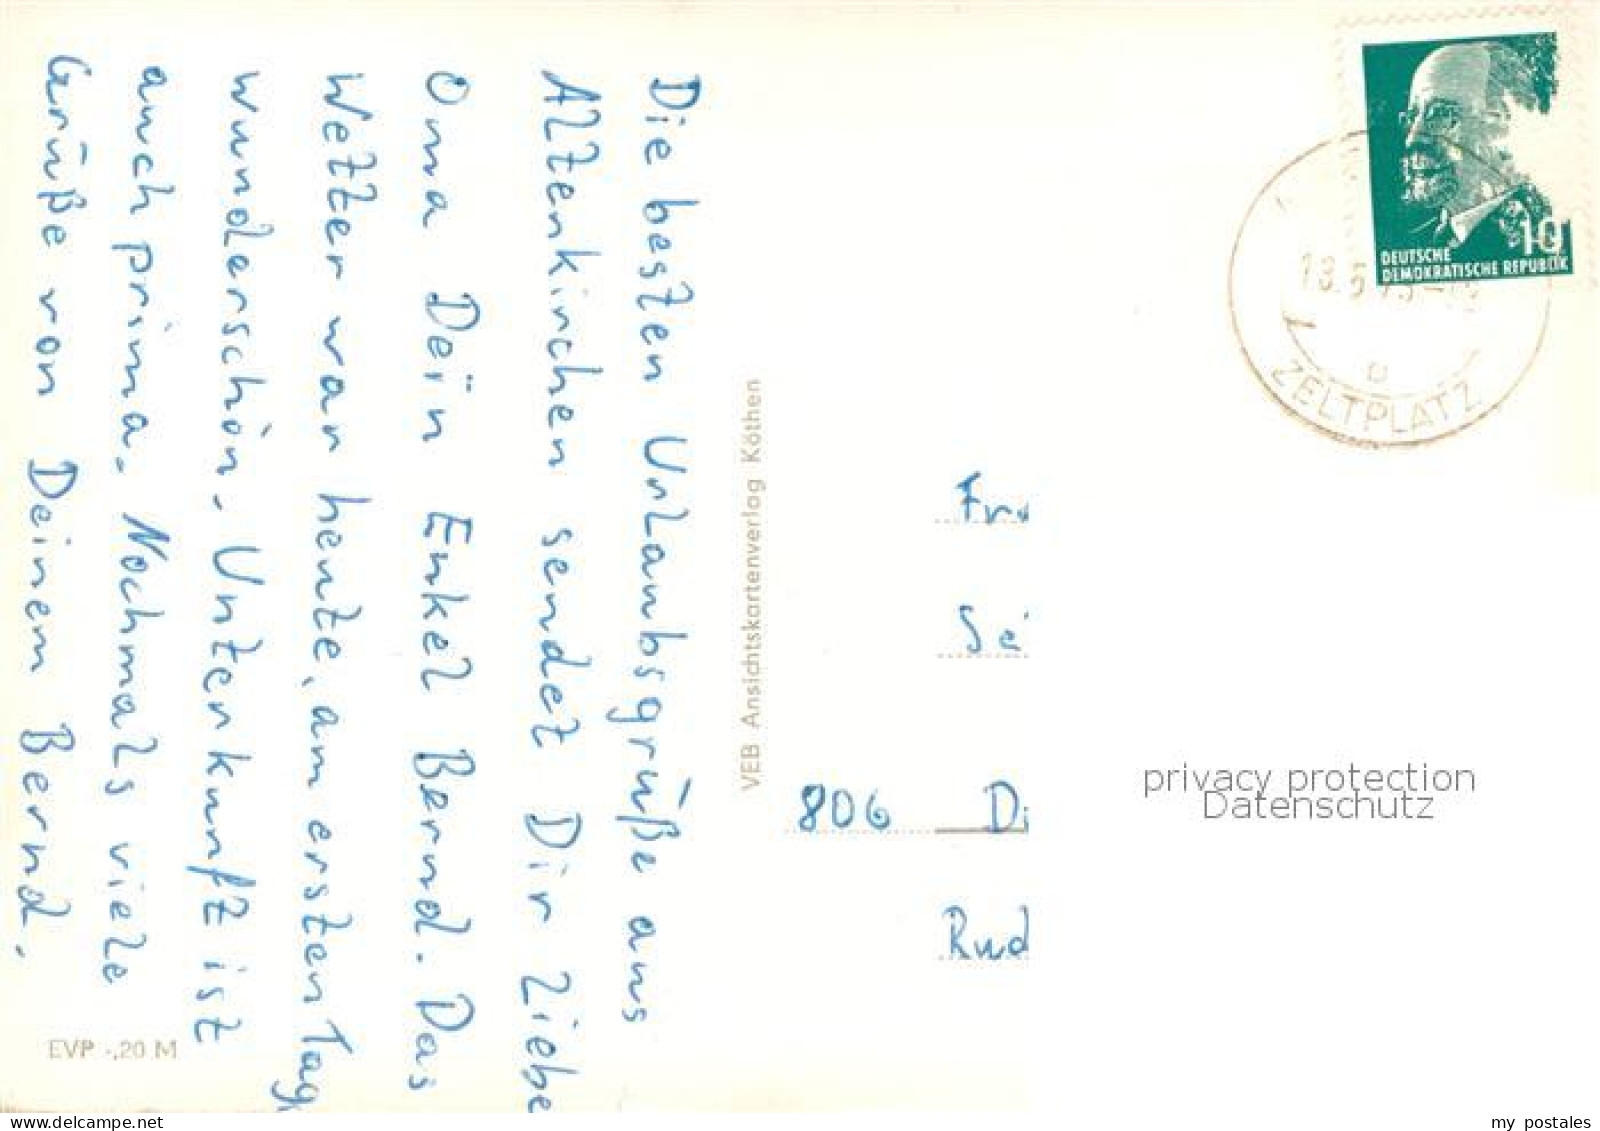 Die besten Urlaubsgrüße aus
Altenkirchen sendet Dir liebe
Oma Dein Enkel Bernd. Das
Wetter war heute, am ersten Tag
wunderschön. Unterkunft ist
auch prima. Nochmals viele
Grüße von Deinem Bernd.
EVP -,20 M
VEB Ansichtskartenverlag Köthen
10
DEUTSCHE
DEMOKRATISCHE REPUBLIK
ZELTPLATZ
Sei
806 D
Rud
privacy protection
Datenschutz
www.delcampe.net
my_postales